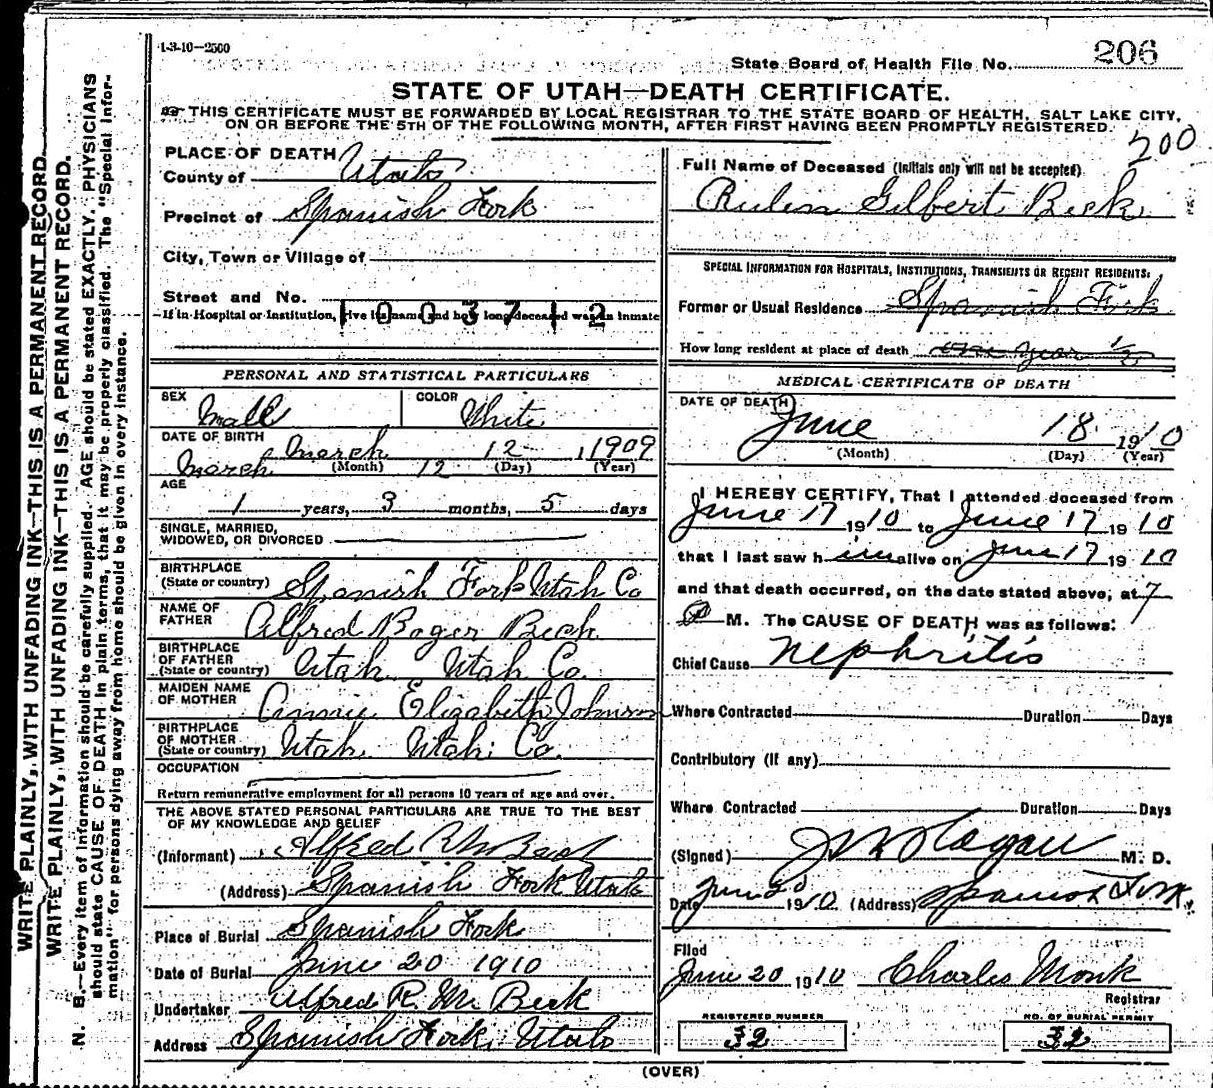 1-3-10-2500
State Board of Health File No. 206
STATE OF UTAH—DEATH CERTIFICATE.
THIS CERTIFICATE MUST BE FORWARDED BY LOCAL REGISTRAR TO THE STATE BOARD OF HEALTH, SALT LAKE CITY,
ON OR BEFORE THE 5TH OF THE FOLLOWING MONTH, AFTER FIRST HAVING BEEN PROMPTLY REGISTERED.
200
WRITE PLAINLY, WITH UNFADING INK—THIS IS A PERMANENT RECORD.
WRITE PLAINLY, WITH UNFADING INK—THIS IS A PERMANENT RECORD.
N. B.—Every item of information should be carefully supplied. AGE should be stated EXACTLY. PHYSICIANS
should state CAUSE OF DEATH in plain terms, that it may be properly classified. The "Special Infor-
mation" for persons dying away from home should be given in every instance.
PLACE OF DEATH
County of Utah
Precinct of Spanish Fork
City, Town or Village of
Street and No.
If in Hospital or Institution, give its name and how long deceased was an inmate
1003712
PERSONAL AND STATISTICAL PARTICULARS
SEX Male COLOR White
DATE OF BIRTH March 12 1909
March (Month) 12 (Day) (Year)
AGE
1 years, 3 months, 5 days
SINGLE, MARRIED,
WIDOWED, OR DIVORCED
BIRTHPLACE
(State or country) Spanish Fork Utah Co
NAME OF
FATHER Alfred Roger Beck
BIRTHPLACE
OF FATHER
(State or country) Utah Utah Co.
MAIDEN NAME
OF MOTHER Annie Elizabeth Johnson
BIRTHPLACE
OF MOTHER
(State or country) Utah Utah Co.
OCCUPATION
Return remunerative employment for all persons 10 years of age and over.
THE ABOVE STATED PERSONAL PARTICULARS ARE TRUE TO THE BEST
OF MY KNOWLEDGE AND BELIEF
(Informant) Alfred R M Beck
(Address) Spanish Fork Utah
Place of Burial Spanish Fork
Date of Burial June 20 1910
Undertaker Alfred R. M. Beck
Address Spanish Fork, Utah
Full Name of Deceased (Initials only will not be accepted)
Gilbert Beck
SPECIAL INFORMATION FOR HOSPITALS, INSTITUTIONS, TRANSIENTS OR RECENT RESIDENTS:
Former or Usual Residence Spanish Fork
How long resident at place of death one year 1/2
MEDICAL CERTIFICATE OF DEATH
DATE OF DEATH
June 18 1910
(Month) (Day) (Year)
I HEREBY CERTIFY, That I attended deceased from
June 17 1910 to June 17 1910
that I last saw him alive on June 17 1910
and that death occurred, on the date stated above, at 7
P M. The CAUSE OF DEATH was as follows:
Chief Cause Nephritis
Where Contracted Duration Days
Contributory (If any)
Where Contracted Duration Days
(Signed) M. D.
Date June 20 1910 (Address) Spanish Fork
Filed
June 20 1910 Charles Monk
Registrar
REGISTERED NUMBER NO. OF BURIAL PERMIT
32 32
(OVER)